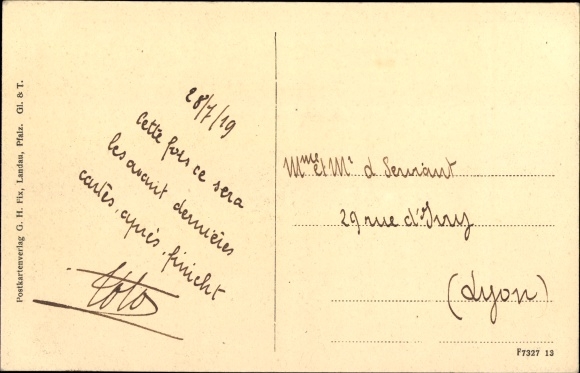 Postkartenverlag G. H. Fix, Landau, Pfalz. Gl. & T.
28/7/19
Cette fois ce sera
les avant dernières
cartes, après, finicht
Toto
Mme et Mr d
29 rue d'Ivry
(Lyon)
F7327 13